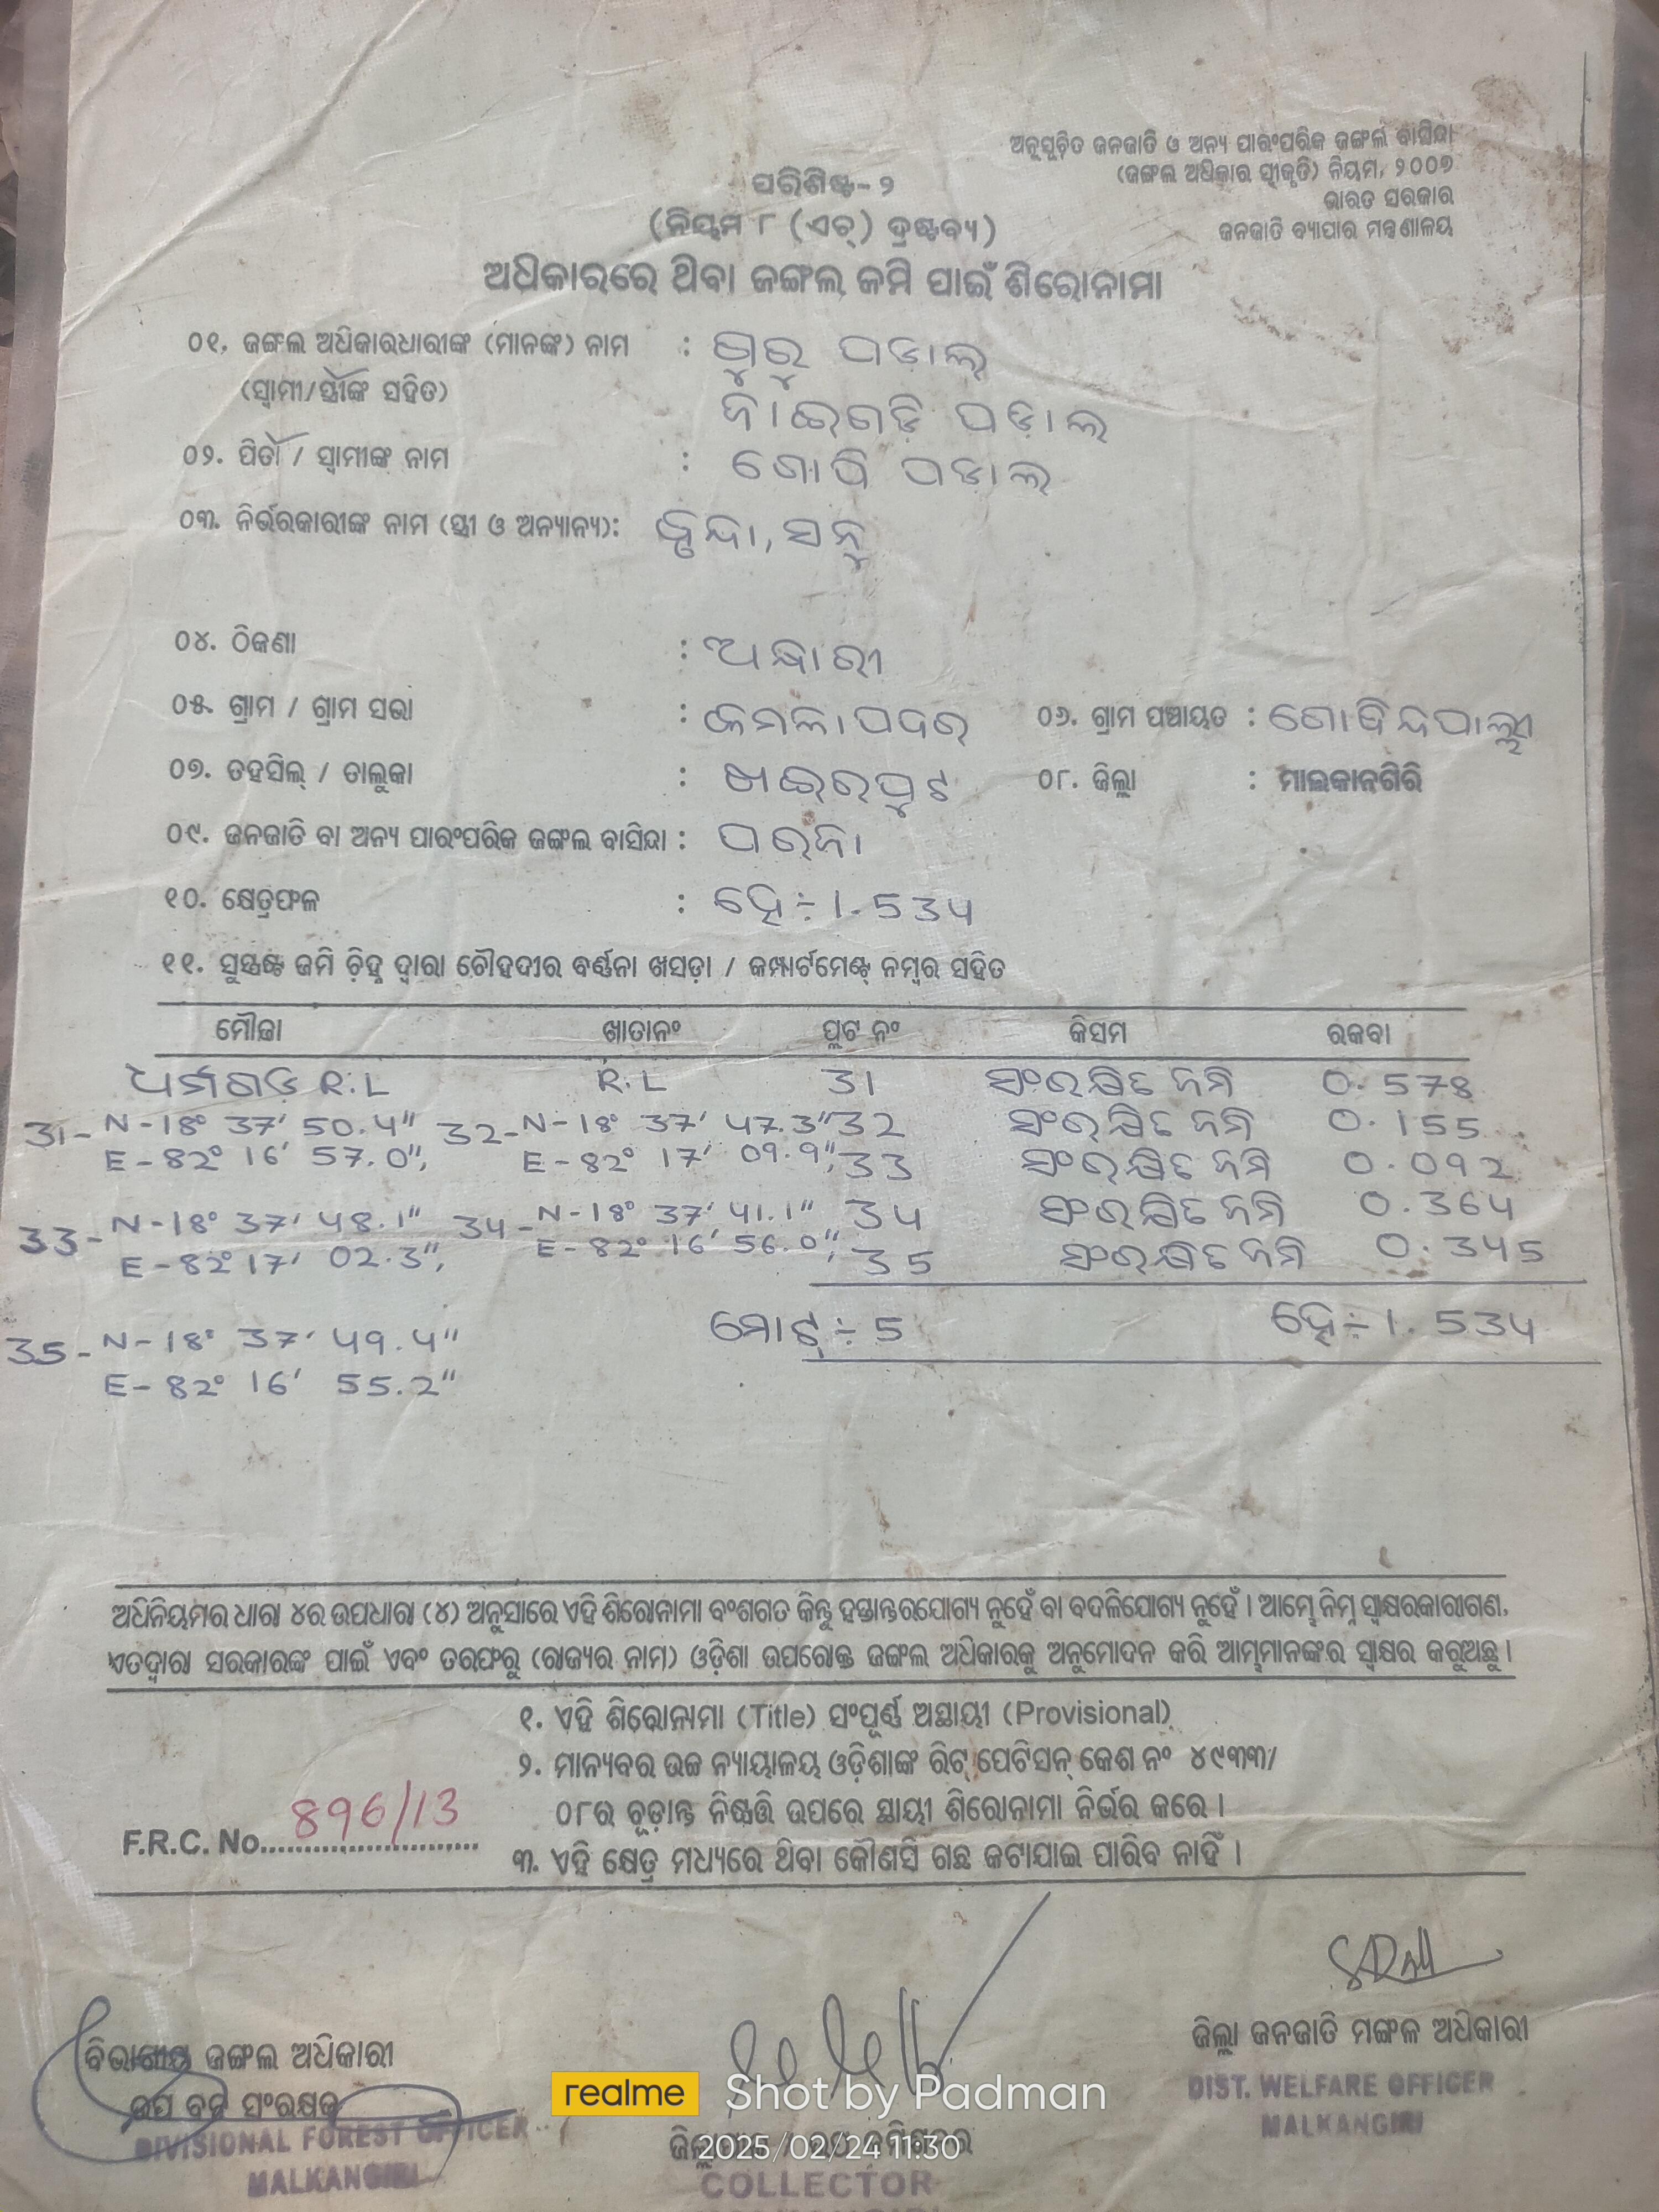 ଅନୁସୂଚିତ ଜନଜାତି ଓ ଅନ୍ୟ ପାରଂପରିକ ଜଙ୍ଗଲ ବାସିନ୍ଦା
(ଜଙ୍ଗଲ ଅଧିକାର ସ୍ୱୀକୃତି) ନିୟମ, ୨୦୦୭
ଭାରତ ସରକାର
ଜନଜାତି ବ୍ୟାପାର ମନ୍ତ୍ରଣାଳୟ
ପରିଶିଷ୍ଟ- ୨
(ନିୟମ ୮ (ଏଚ୍) ଦ୍ରଷ୍ଟବ୍ୟ)
ଅଧିକାରରେ ଥିବା ଜଙ୍ଗଲ ଜମି ପାଇଁ ଶିରୋନାମା
୦୧. ଜଙ୍ଗଲ ଅଧିକାରଧାରୀଙ୍କ (ମାନଙ୍କ) ନାମ : ଗୁରୁ ପଡ଼ାଲ୍
(ସ୍ୱାମୀ/ସ୍ତ୍ରୀଙ୍କ ସହିତ) ପଡ଼ାଲ
୦୨. ପିତା / ସ୍ୱାମୀଙ୍କ ନାମ : ଗୋପି ପଡ଼ାଲ
୦୩. ନିର୍ଭରକାରୀଙ୍କ ନାମ (ସ୍ତ୍ରୀ ଓ ଅନ୍ୟାନ୍ୟ): ସନୁ
୦୪. ଠିକଣା : ଅନ୍ଧାରୀ
୦୫. ଗ୍ରାମ / ଗ୍ରାମ ସଭା : କମଳାପଦର ୦୬. ଗ୍ରାମ ପଞ୍ଚାୟତ : ଗୋବିନ୍ଦପାଲ୍ଲୀ
୦୭. ତହସିଲ୍ / ତାଲୁକା : ଖଇରପୁଟ ୦୮. ଜିଲ୍ଲା : ମାଲକାନଗିରି
୦୯. ଜନଜାତି ବା ଅନ୍ୟ ପାରଂପରିକ ଜଙ୍ଗଲ ବାସିନ୍ଦା : ପରଜା
୧୦. କ୍ଷେତ୍ରଫଳ : ହେ÷ 1.534
୧୧. ସୁସ୍ପଷ୍ଟ ଜମି ଚିହ୍ନ ଦ୍ୱାରା ଚୌହଦୀର ବର୍ଣ୍ଣନା ଖସଡ଼ା / କମ୍ପାର୍ଟମେଣ୍ଟ୍ ନମ୍ବର ସହିତ
ମୌଜା ଖାତାନଂ ପ୍ଲଟ ନଂ କିସମ ରକବା
ଧର୍ମଗଡ଼ R.L R.L 31 ସଂରକ୍ଷିତ ଜମି 0.578
31- N-18° 37' 50.4" 32- N-18° 37' 47.3" 32 ସଂରକ୍ଷିତ ଜମି 0.155
E-82° 16' 57.0", E-82° 17' 09.9", 33 ସଂରକ୍ଷିତ ଜମି 0.092
33- N-18° 37' 48.1" 34- N-18° 37' 41.1" 34 ସଂରକ୍ଷିତ ଜମି 0.364
E-82° 17' 02.3", E-82° 16' 56.0", 35 ସଂରକ୍ଷିତ ଜମି 0.345
35- N-18° 37' 49.4" ମୋଟ୍ ÷ 5 ହେ÷ 1.534
E-82° 16' 55.2"
ଅଧିନିୟମର ଧାରା ୪ର ଉପଧାରା (୪) ଅନୁସାରେ ଏହି ଶିରୋନାମା ବଂଶଗତ କିନ୍ତୁ ହସ୍ତାନ୍ତରଯୋଗ୍ୟ ନୁହେଁ ବା ବଦଳିଯୋଗ୍ୟ ନୁହେଁ । ଆମ୍ଭେ ନିମ୍ନ ସ୍ୱାକ୍ଷରକାରୀଗଣ,
ଏତଦ୍ୱାରା ସରକାରଙ୍କ ପାଇଁ ଏବଂ ତରଫରୁ (ରାଜ୍ୟର ନାମ) ଓଡ଼ିଶା ଉପରୋକ୍ତ ଜଙ୍ଗଲ ଅଧିକାରକୁ ଅନୁମୋଦନ କରି ଆମ୍ଭମାନଙ୍କର ସ୍ୱାକ୍ଷର କରୁଅଛୁ ।
୧. ଏହି ଶିରୋନାମା (Title) ସଂପୂର୍ଣ୍ଣ ଅସ୍ଥାୟୀ (Provisional)
୨. ମାନ୍ୟବର ଉଚ୍ଚ ନ୍ୟାୟାଳୟ ଓଡ଼ିଶାଙ୍କ ରିଟ୍ ପେଟିସନ୍ କେଶ ନଂ ୪୯୩୩/
୦୮ର ଚୂଡ଼ାନ୍ତ ନିଷ୍ପତ୍ତି ଉପରେ ସ୍ଥାୟୀ ଶିରୋନାମା ନିର୍ଭର କରେ ।
F.R.C. No. 896/13
୩. ଏହି କ୍ଷେତ୍ର ମଧ୍ୟରେ ଥିବା କୌଣସି ଗଛ କଟାଯାଇ ପାରିବ ନାହିଁ ।
ବିଭାଗୀୟ ଜଙ୍ଗଲ ଅଧିକାରୀ
ଉପ ବନ ସଂରକ୍ଷକ
DIVISIONAL FOREST OFFICER
MALKANGIRI
ଜିଲ୍ଲା ଜନଜାତି ମଙ୍ଗଳ ଅଧିକାରୀ
DIST. WELFARE OFFICER
MALKANGIRI
realme Shot by Padman
2025/02/24 11:30
COLLECTOR